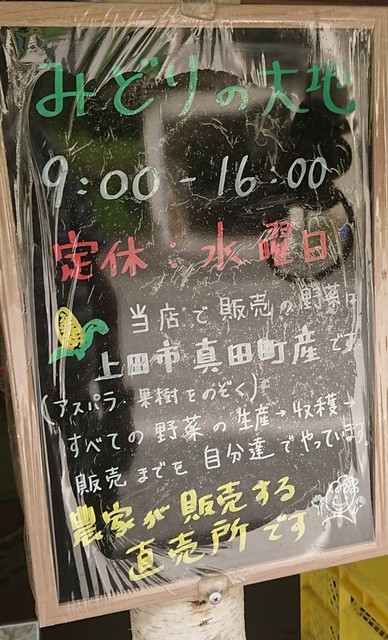 みどりの大地
9:00 - 16:00
定休:水曜日
当店で販売の野菜は
上田市真田町産です。
(アスパラ・果樹をのぞく)
すべての野菜の生産→収穫→
販売までを自分達でやっています。
農家が販売する
直売所です